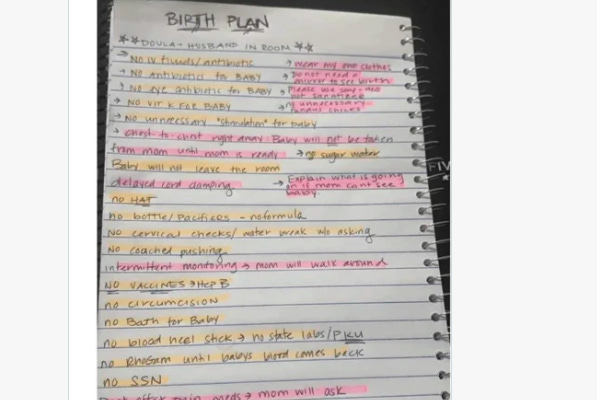 BIRTH PLAN
** DOULA + HUSBAND IN ROOM **
→ NO IV fluids/antibiotic → wear my own clothes
→ NO Antibiotics for BABY → Do not need a mirror to see
→ NO eye antibiotic for BABY → Please
→ NO Vit K FOR BABY → NO unnecessary fundus checks
→ NO unnecessary "stimulation" for baby
→ chest to chest right away. Baby will not be taken
from mom until mom is ready → no sugar water
Baby will not leave the room
delayed cord clamping → Explain what is going on if mom cant see baby.
no HAT
no bottle/Pacifiers - no formula
NO cervical checks/water break w/o asking
NO coached pushing
intermittent monitoring → mom will walk around
NO VACCINES → HEP B
no circumcision
no Bath for Baby
no blood heel stick → no state labs/PKU
no RhoGam until babys blood comes back
no SSN
offer pain meds → mom will ask
FIV